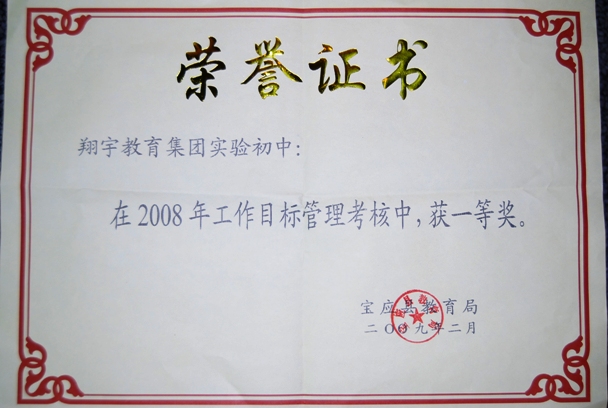 荣誉证书
翔宇教育集团实验初中：
在2008年工作目标管理考核中，获一等奖。
宝应县教育局
二〇〇九年二月